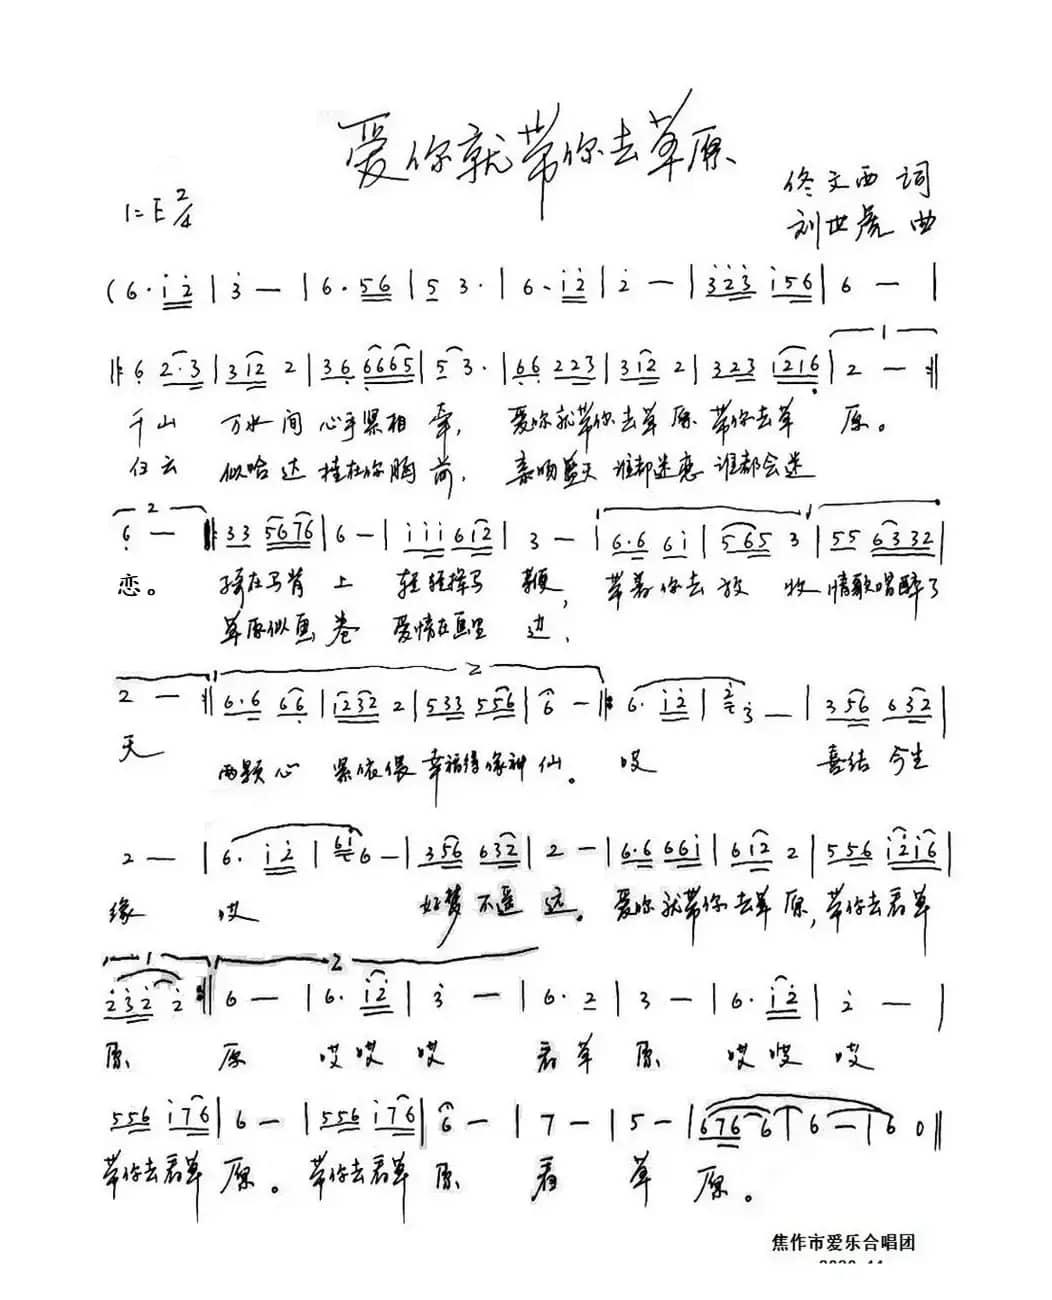 爱你就带你去草原
佟文西 词
1=E 2/4
刘世虎 曲
(6· i 2 | 3 — | 6· 5 6 | 5 3· | 6· i 2 | 2 — | 3 2 3 i 5 6 | 6 — |
‖: 6 2·3 | 3 i 2 2 | 3 6 6 6 6 5 | 5 3· | 6 6 2 2 3 | 3 i 2 2 | 3 2 3 i 2 i 6 | 2 — :‖
千山 万水间 心手紧相牵, 爱你就带你去草原 带你去草 原。
白云 似哈达 挂在你胸前, 亲吻蓝天 谁都迷恋 谁都会迷
6 — ‖: 3 3 5 6 7 6 | 6 — | i i i 6 i 2 | 3 — | 6·6 6 i | 5 6 5 3 | 5 5 6 3 3 2 |
恋。 骑在马背 上 轻轻挥马 鞭, 带着你去放 牧 情歌唱醉了
草原似画 卷 爱情在画里 边,
2 — :‖ 6·6 6 6 | i 2 3 2 2 | 5 3 3 5 5 6 | 6 — :‖ 6· i 2 | 2 3 — | 3 5 6 6 3 2 |
天 两颗心 紧依偎 幸福得像神 仙。 哎 喜结 今生
2 — | 6· i 2 | 6 i 6 — | 3 5 6 6 3 2 | 2 — | 6·6 6 6 i | 6 i 2 2 | 5 5 6 i 2 i 6 |
缘 哎 好梦 不遥 远。 爱你就带你去草原, 带你去看草
2 3 2 2 :‖ 6 — | 6· i 2 | 3 — | 6· 2 | 3 — | 6· i 2 | 2 — |
原 原 哎哎 哎 看草 原 哎哎 哎
5 5 6 i 7 6 | 6 — | 5 5 6 i 7 6 | 6 — | 7 — | 5 — | 6 7 6 6 | 6 — | 6 0 ‖
带你去看草 原。 带你去看草 原 看 草 原。
焦作市爱乐合唱团